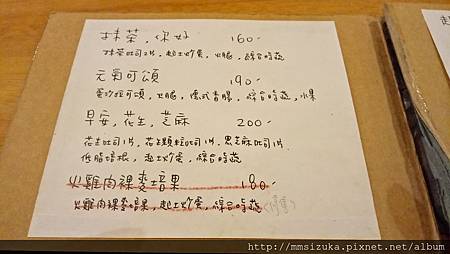 抹茶，你好 160.-
抹茶吐司2片，起士炒蛋，火腿，綜合時蔬
元氣可頌 190.-
可頌，火腿，德式香腸，綜合時蔬，水果
早安，花生，芝麻 200.-
花生吐司1片，花生顆粒吐司1片，黑芝麻吐司1片
低脂培根，起士炒蛋，綜合時蔬
火雞肉裸麥培果 180.-
火雞肉裸麥培果，起士炒蛋，綜合時蔬
http://mmsizuka.pixnet.net/album